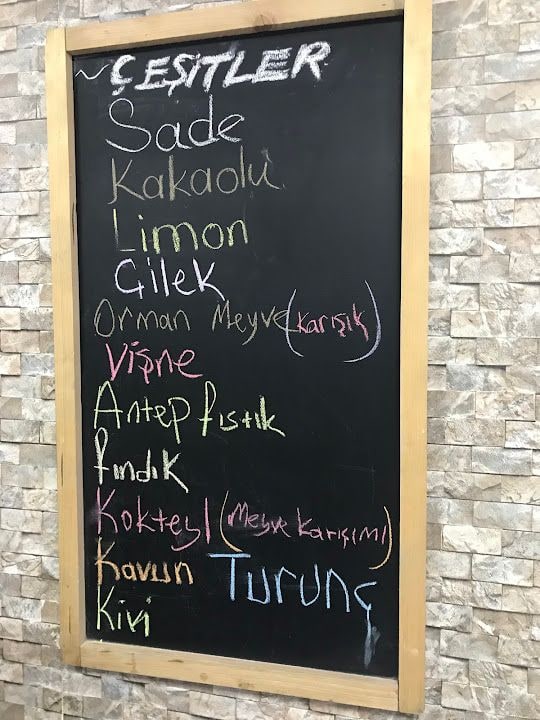 ~ ÇEŞİTLER
Sade
Kakaolu
Limon
Çilek
Orman Meyve (karışık)
Vişne
Antep fıstık
fındık
Kokteyl (Meyve Karışımı)
Kavun Turunç
Kivi